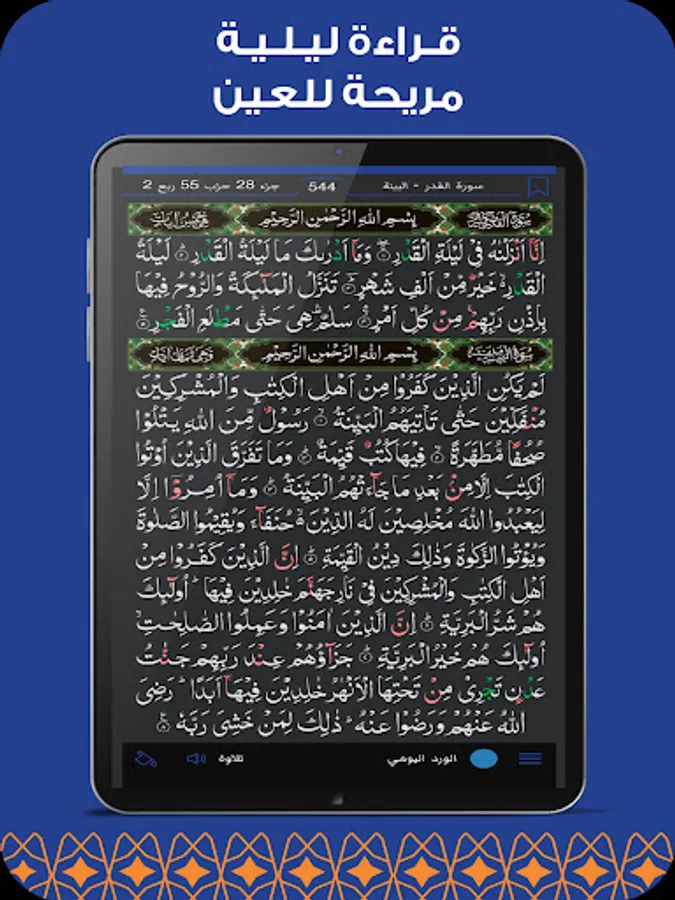 قراءة ليلية
مريحة للعين
سورة القدر - البينة
544
جزء 28 حزب 55 ربع 2
بِسْمِ اللهِ الرَّحْمٰنِ الرَّحِيْمِ
اِنَّاۤ اَنْزَلْنٰهُ فِيْ لَيْلَةِ الْقَدْرِ ۚ وَمَاۤ اَدْرٰىكَ مَا لَيْلَةُ الْقَدْرِ ؕ لَيْلَةُ
الْقَدْرِ ۙ خَيْرٌ مِّنْ اَلْفِ شَهْرٍ ؕ تَنَزَّلُ الْمَلٰٓئِكَةُ وَالرُّوْحُ فِيْهَا
بِاِذْنِ رَبِّهِمْ مِّنْ كُلِّ اَمْرٍ ۙ سَلٰمٌ ۛ هِيَ حَتّٰى مَطْلَعِ الْفَجْرِ
بِسْمِ اللهِ الرَّحْمٰنِ الرَّحِيْمِ
لَمْ يَكُنِ الَّذِيْنَ كَفَرُوْا مِنْ اَهْلِ الْكِتٰبِ وَالْمُشْرِكِيْنَ
مُنْفَكِّيْنَ حَتّٰى تَاْتِيَهُمُ الْبَيِّنَةُ ۙ رَسُوْلٌ مِّنَ اللهِ يَتْلُوْا
صُحُفًا مُّطَهَّرَةً ۙ فِيْهَا كُتُبٌ قَيِّمَةٌ ؕ وَمَا تَفَرَّقَ الَّذِيْنَ اُوْتُوا
الْكِتٰبَ اِلَّا مِنْۢ بَعْدِ مَا جَآءَتْهُمُ الْبَيِّنَةُ ؕ وَمَاۤ اُمِرُوْۤا اِلَّا
لِيَعْبُدُوا اللهَ مُخْلِصِيْنَ لَهُ الدِّيْنَ ۙ حُنَفَآءَ وَيُقِيْمُوا الصَّلٰوةَ
وَيُؤْتُوا الزَّكٰوةَ وَذٰلِكَ دِيْنُ الْقَيِّمَةِ ؕ اِنَّ الَّذِيْنَ كَفَرُوْا مِنْ
اَهْلِ الْكِتٰبِ وَالْمُشْرِكِيْنَ فِيْ نَارِ جَهَنَّمَ خٰلِدِيْنَ فِيْهَا ؕ اُولٰٓئِكَ
هُمْ شَرُّ الْبَرِيَّةِ ؕ اِنَّ الَّذِيْنَ اٰمَنُوْا وَعَمِلُوا الصّٰلِحٰتِ ۙ
اُولٰٓئِكَ هُمْ خَيْرُ الْبَرِيَّةِ ؕ جَزَآؤُهُمْ عِنْدَ رَبِّهِمْ جَنّٰتُ
عَدْنٍ تَجْرِيْ مِنْ تَحْتِهَا الْاَنْهٰرُ خٰلِدِيْنَ فِيْهَاۤ اَبَدًا ؕ رَضِيَ
اللهُ عَنْهُمْ وَرَضُوْا عَنْهُ ؕ ذٰلِكَ لِمَنْ خَشِيَ رَبَّهٗ
الورد اليومي
تلاوة